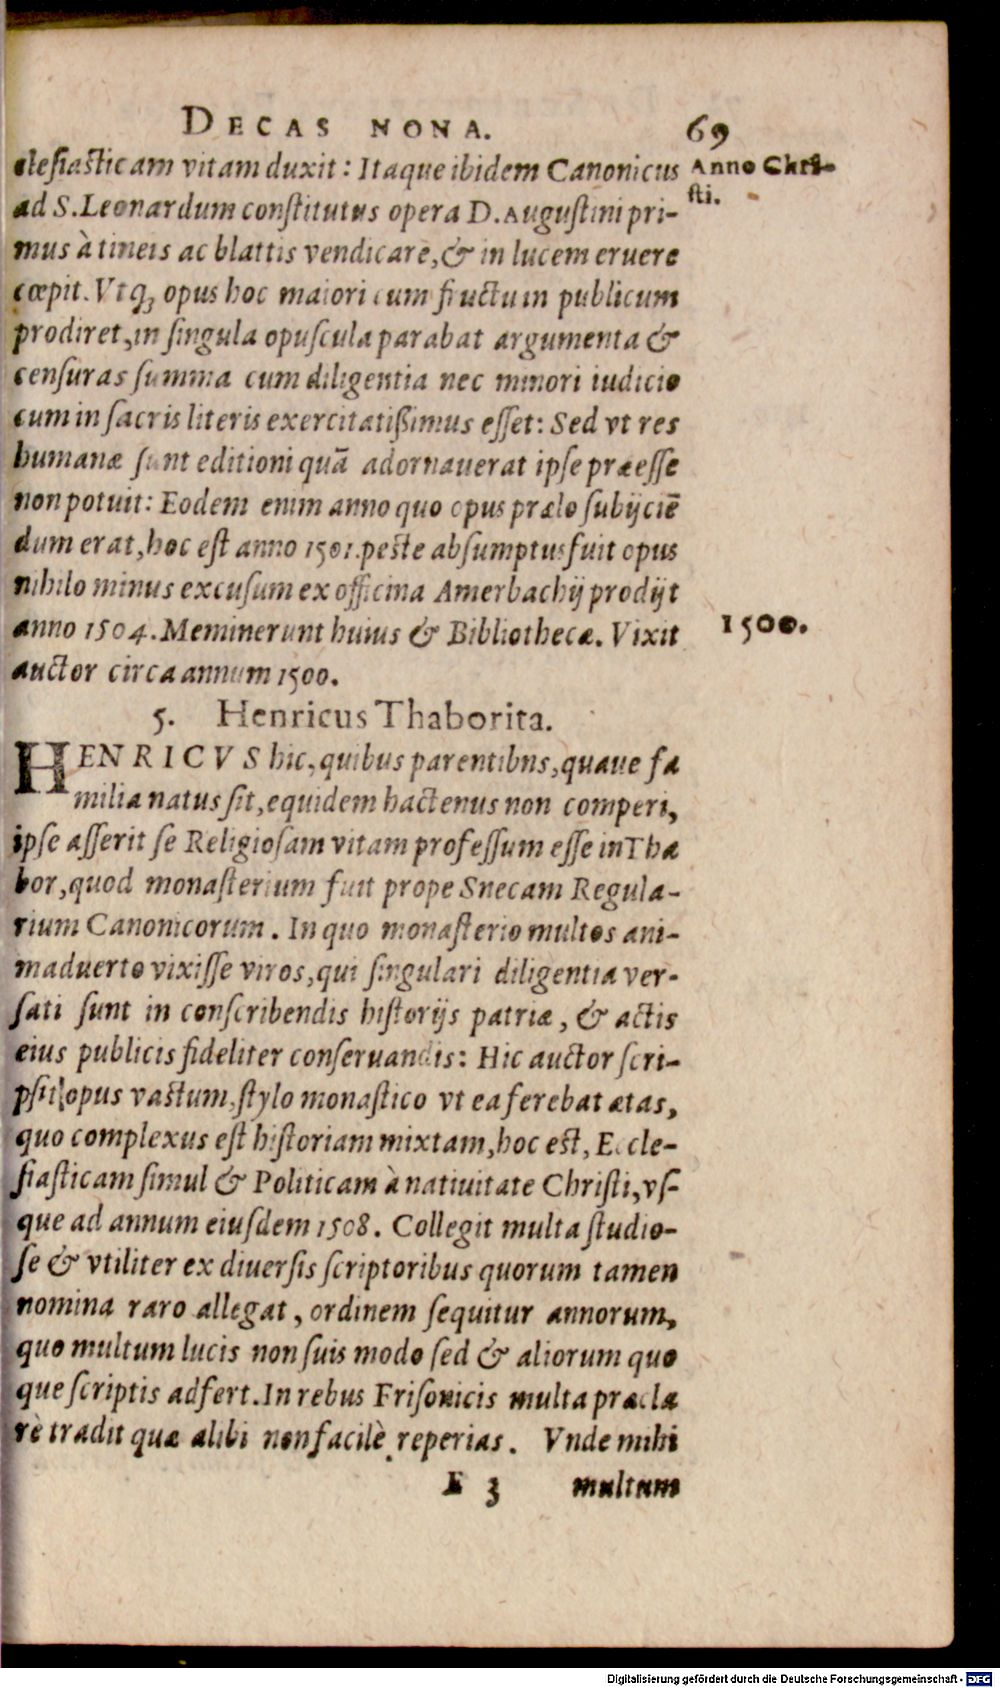 DECAS NONA. 69
clesiasticam vitam duxit: Itaque ibidem Canonicus
Anno Chri-
sti.
ad S. Leonardum constitutus opera D. Augustini pri-
mus à tineis ac blattis vendicare, & in lucem eruere
cœpit. Vtq; opus hoc maiori cum fructu in publicum
prodiret, in singula opuscula parabat argumenta &
censuras summa cum diligentia nec minori iudicio
cum in sacris literis exercitatißimus esset: Sed vt res
humanæ sunt editioni quã adornauerat ipse præesse
non potuit: Eodem enim anno quo opus prælo subijciẽ
dum erat, hoc est anno 1501. peste absumptus fuit opus
nihilo minus excusum ex officina Amerbachij prodijt
anno 1504. Meminerunt huius & Bibliothecæ. Vixit
1500.
auctor circa annum 1500.
5. Henricus Thaborita.
HENRICVS hic, quibus parentibns, quaue fa
milia natus sit, equidem hactenus non comperi,
ipse asserit se Religiosam vitam professum esse in Tha
bor, quod monasterium fuit prope Snecam Regula-
rium Canonicorum. In quo monasterio multos ani-
maduerto vixisse viros, qui singulari diligentia ver-
sati sunt in conscribendis historijs patriæ, & actis
eius publicis fideliter conseruandis: Hic auctor scri-
psit opus vastum, stylo monastico vt ea ferebat ætas,
quo complexus est historiam mixtam, hoc est, Eccle-
siasticam simul & Politicam à natiuitate Christi, vs-
que ad annum eiusdem 1508. Collegit multa studio-
se & vtiliter ex diuersis scriptoribus quorum tamen
nomina raro allegat, ordinem sequitur annorum,
quo multum lucis non suis modo sed & aliorum quo
que scriptis adfert. In rebus Frisonicis multa præcla
rè tradit quæ alibi non facilè reperias. Vnde mihi
E 3 multum
Digitalisierung gefördert durch die Deutsche Forschungsgemeinschaft - DFG